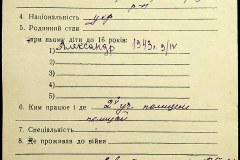 р-н
4. Національність укр
5. Родинний стан
при ньому діти до 16 років:
1) Александр 1943г 9/IV
2)
3)
4)
5)
6. Ким працює і де 2й уч. полиции
полицай
7. Спеціяльність
8. Де проживав до війни